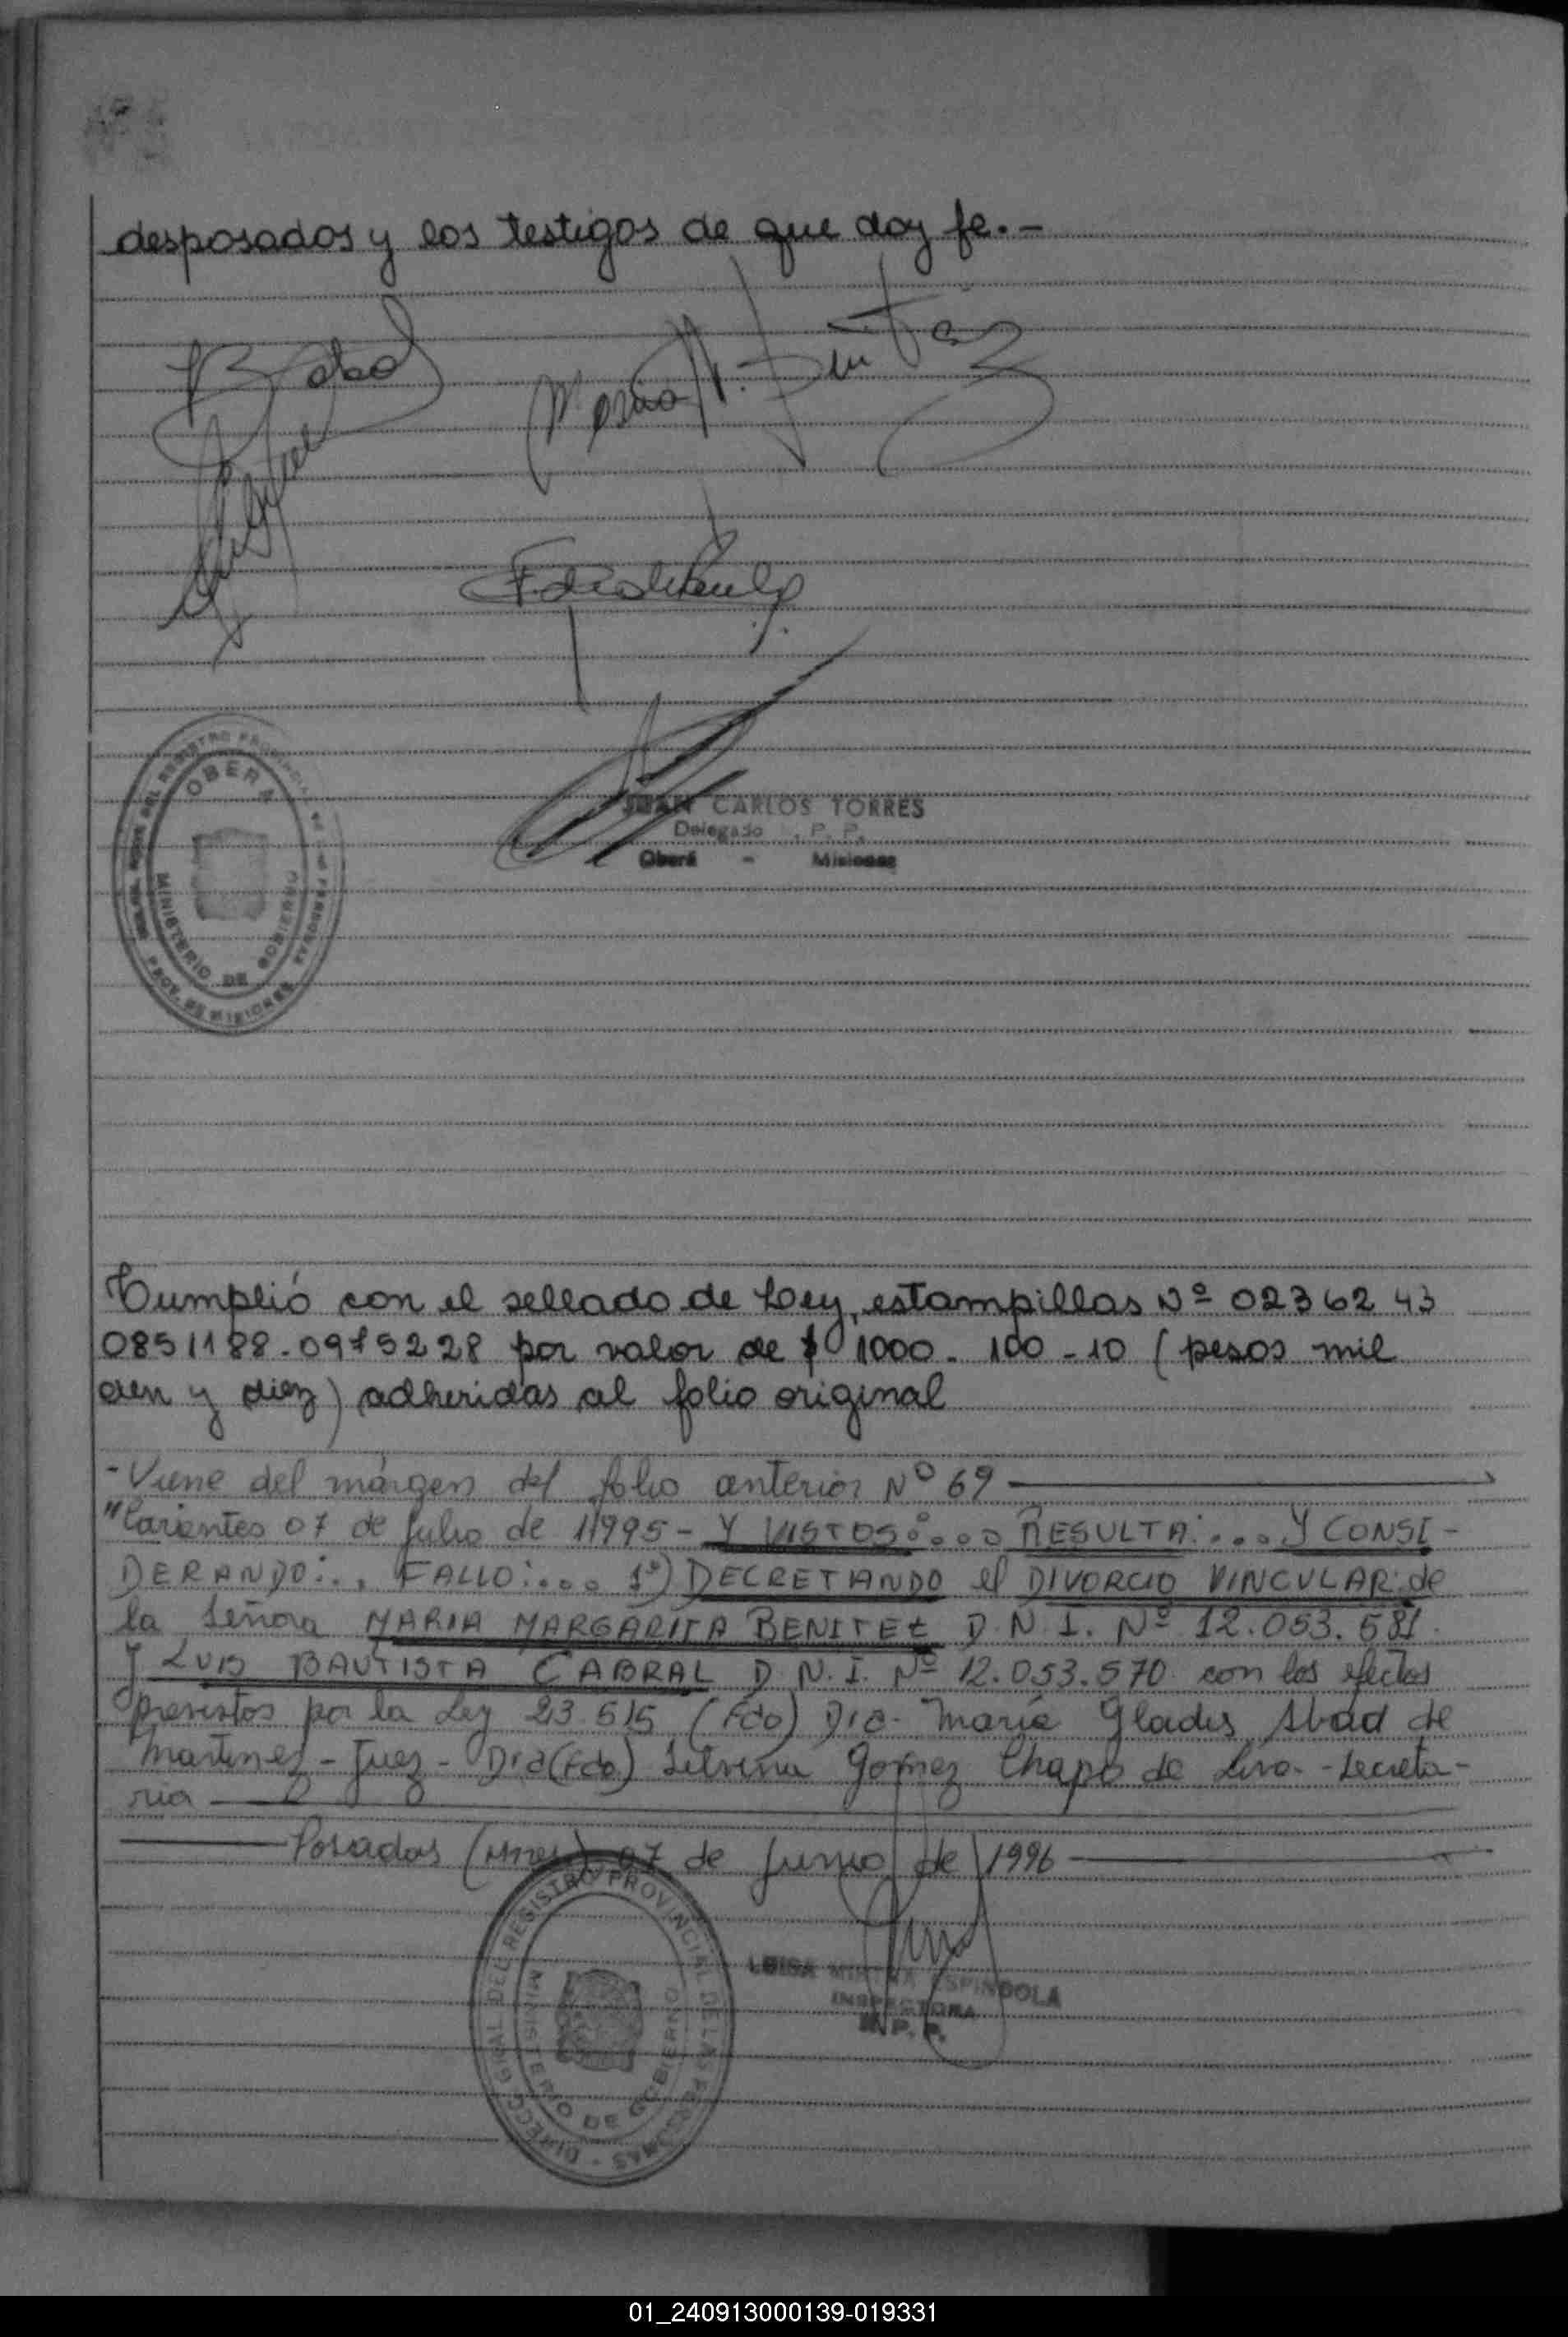 desposados y los testigos de que doy fe.-
OBERA
MINISTERIO DE GOBIERNO
PROV. DE MISIONES
JUAN CARLOS TORRES
Delegado R. P. P.
Oberá - Misiones
Cumplió con el sellado de Ley, estampillas Nº 0236243
0851188-0975228 por valor de $ 1000-100-10 (pesos mil
cien y diez) adheridas al folio original
-Viene del márgen del folio anterior Nº 69
"Corrientes 07 de Julio de 1995- Y VISTOS:... RESULTA:... Y CONSI-
DERANDO:.. FALLO:... 1º) DECRETANDO el DIVORCIO VINCULAR de
la Señora MARIA MARGARITA BENITEZ D.N.I. Nº 12.053.581
y LUIS BAUTISTA CABRAL D.N.I. Nº 12.053.570 con los efectos
previstos por la Ley 23.515 (Fdo) Dra. María Gladis Abad de
Martinez - Juez - Dra (Fdo) Silvina Gomez Chapo de - Secreta-
ria
Posadas (Mnes) 07 de Junio de 1996
DIRECC GRAL DEL REGISTRO PROVINCIAL DE LAS PERSONAS
MINISTERIO DE GOBIERNO
LUISA MIRTHA ESPINDOLA
INSPECTORA
R. P. P.
01_240913000139-019331